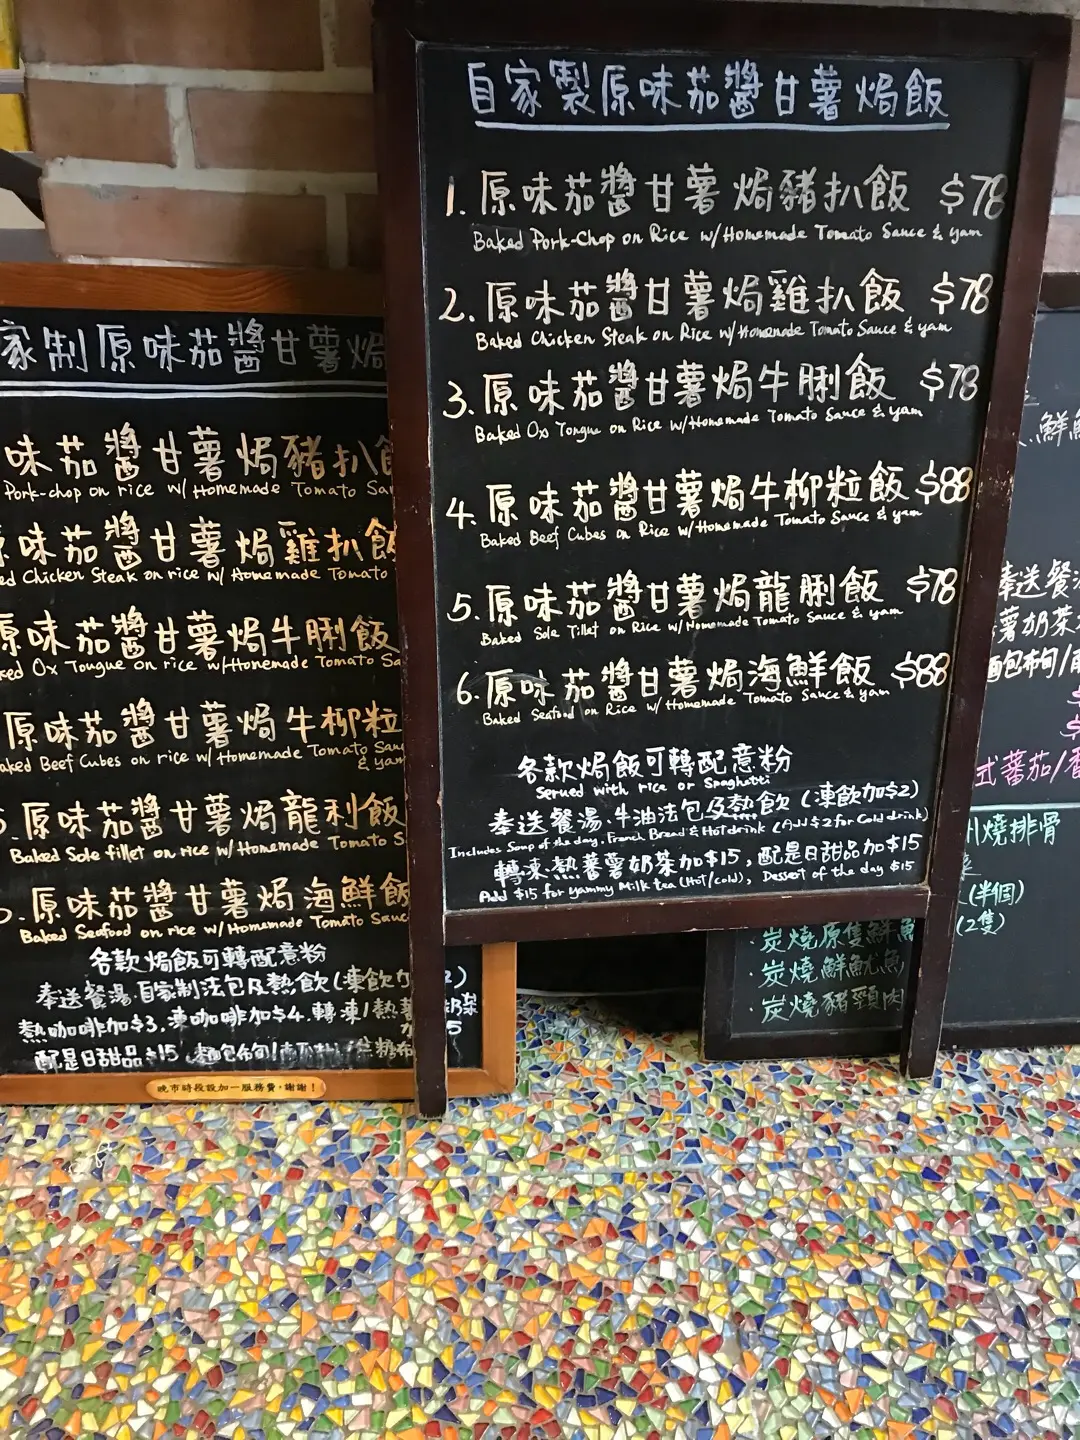 自家製原味茄醬甘薯焗飯
1. 原味茄醬甘薯焗豬扒飯 $78
Baked Pork-Chop on Rice w/Homemade Tomato Sauce & yam
2. 原味茄醬甘薯焗雞扒飯 $78
Baked Chicken Steak on Rice w/Homemade Tomato Sauce & yam
3. 原味茄醬甘薯焗牛脷飯 $78
Baked Ox Tongue on Rice w/Homemade Tomato Sauce & yam
4. 原味茄醬甘薯焗牛柳粒飯 $88
Baked Beef Cubes on Rice w/Homemade Tomato Sauce & yam
5. 原味茄醬甘薯焗龍脷飯 $78
Baked Sole Fillet on Rice w/Homemade Tomato Sauce & yam
6. 原味茄醬甘薯焗海鮮飯 $88
Baked Seafood on Rice w/Homemade Tomato Sauce & yam
各款焗飯可轉配意粉
Served with rice or Spaghetti
奉送餐湯、牛油法包及熱飲(凍飲加$2)
Includes Soup of the day, French Bread & Hot drink (Add $2 for Cold drink)
轉凍、熱蕃薯奶茶加$15，配是日甜品加$15
Add $15 for yammy Milk tea (Hot/cold), Dessert of the day $15
家制原味茄醬甘薯焗
味茄醬甘薯焗豬扒飯
Pork-chop on rice w/Homemade Tomato Sau
原味茄醬甘薯焗雞扒飯
ed Chicken Steak on rice w/Homemade Tomato
原味茄醬甘薯焗牛脷飯
ked Ox Tougue on rice w/Homemade Tomato Sa
原味茄醬甘薯焗牛柳粒
aked Beef Cubes on rice w/Homemade Tomato Sau
& yam
5. 原味茄醬甘薯焗龍利飯
Baked Sole fillet on rice w/Homemade Tomato S
原味茄醬甘薯焗海鮮飯
Baked Seafood on rice w/Homemade Tomato Sauc
各款焗飯可轉配意粉
奉送餐湯、自家制法包及熱飲(凍飲加 2)
熱咖啡加$3，凍咖啡加$4，轉凍/熱蕃 奶茶
5
配是日甜品$15，麵包布甸
晚市時段設加一服務費，謝謝！
鮮
奉送餐湯
薯奶茶
麵包布甸/
式蕃茄/
燒排骨
(半個)
(2隻)
·炭燒原隻鮮魷
·炭燒鮮魷魚
·炭燒豬頸肉